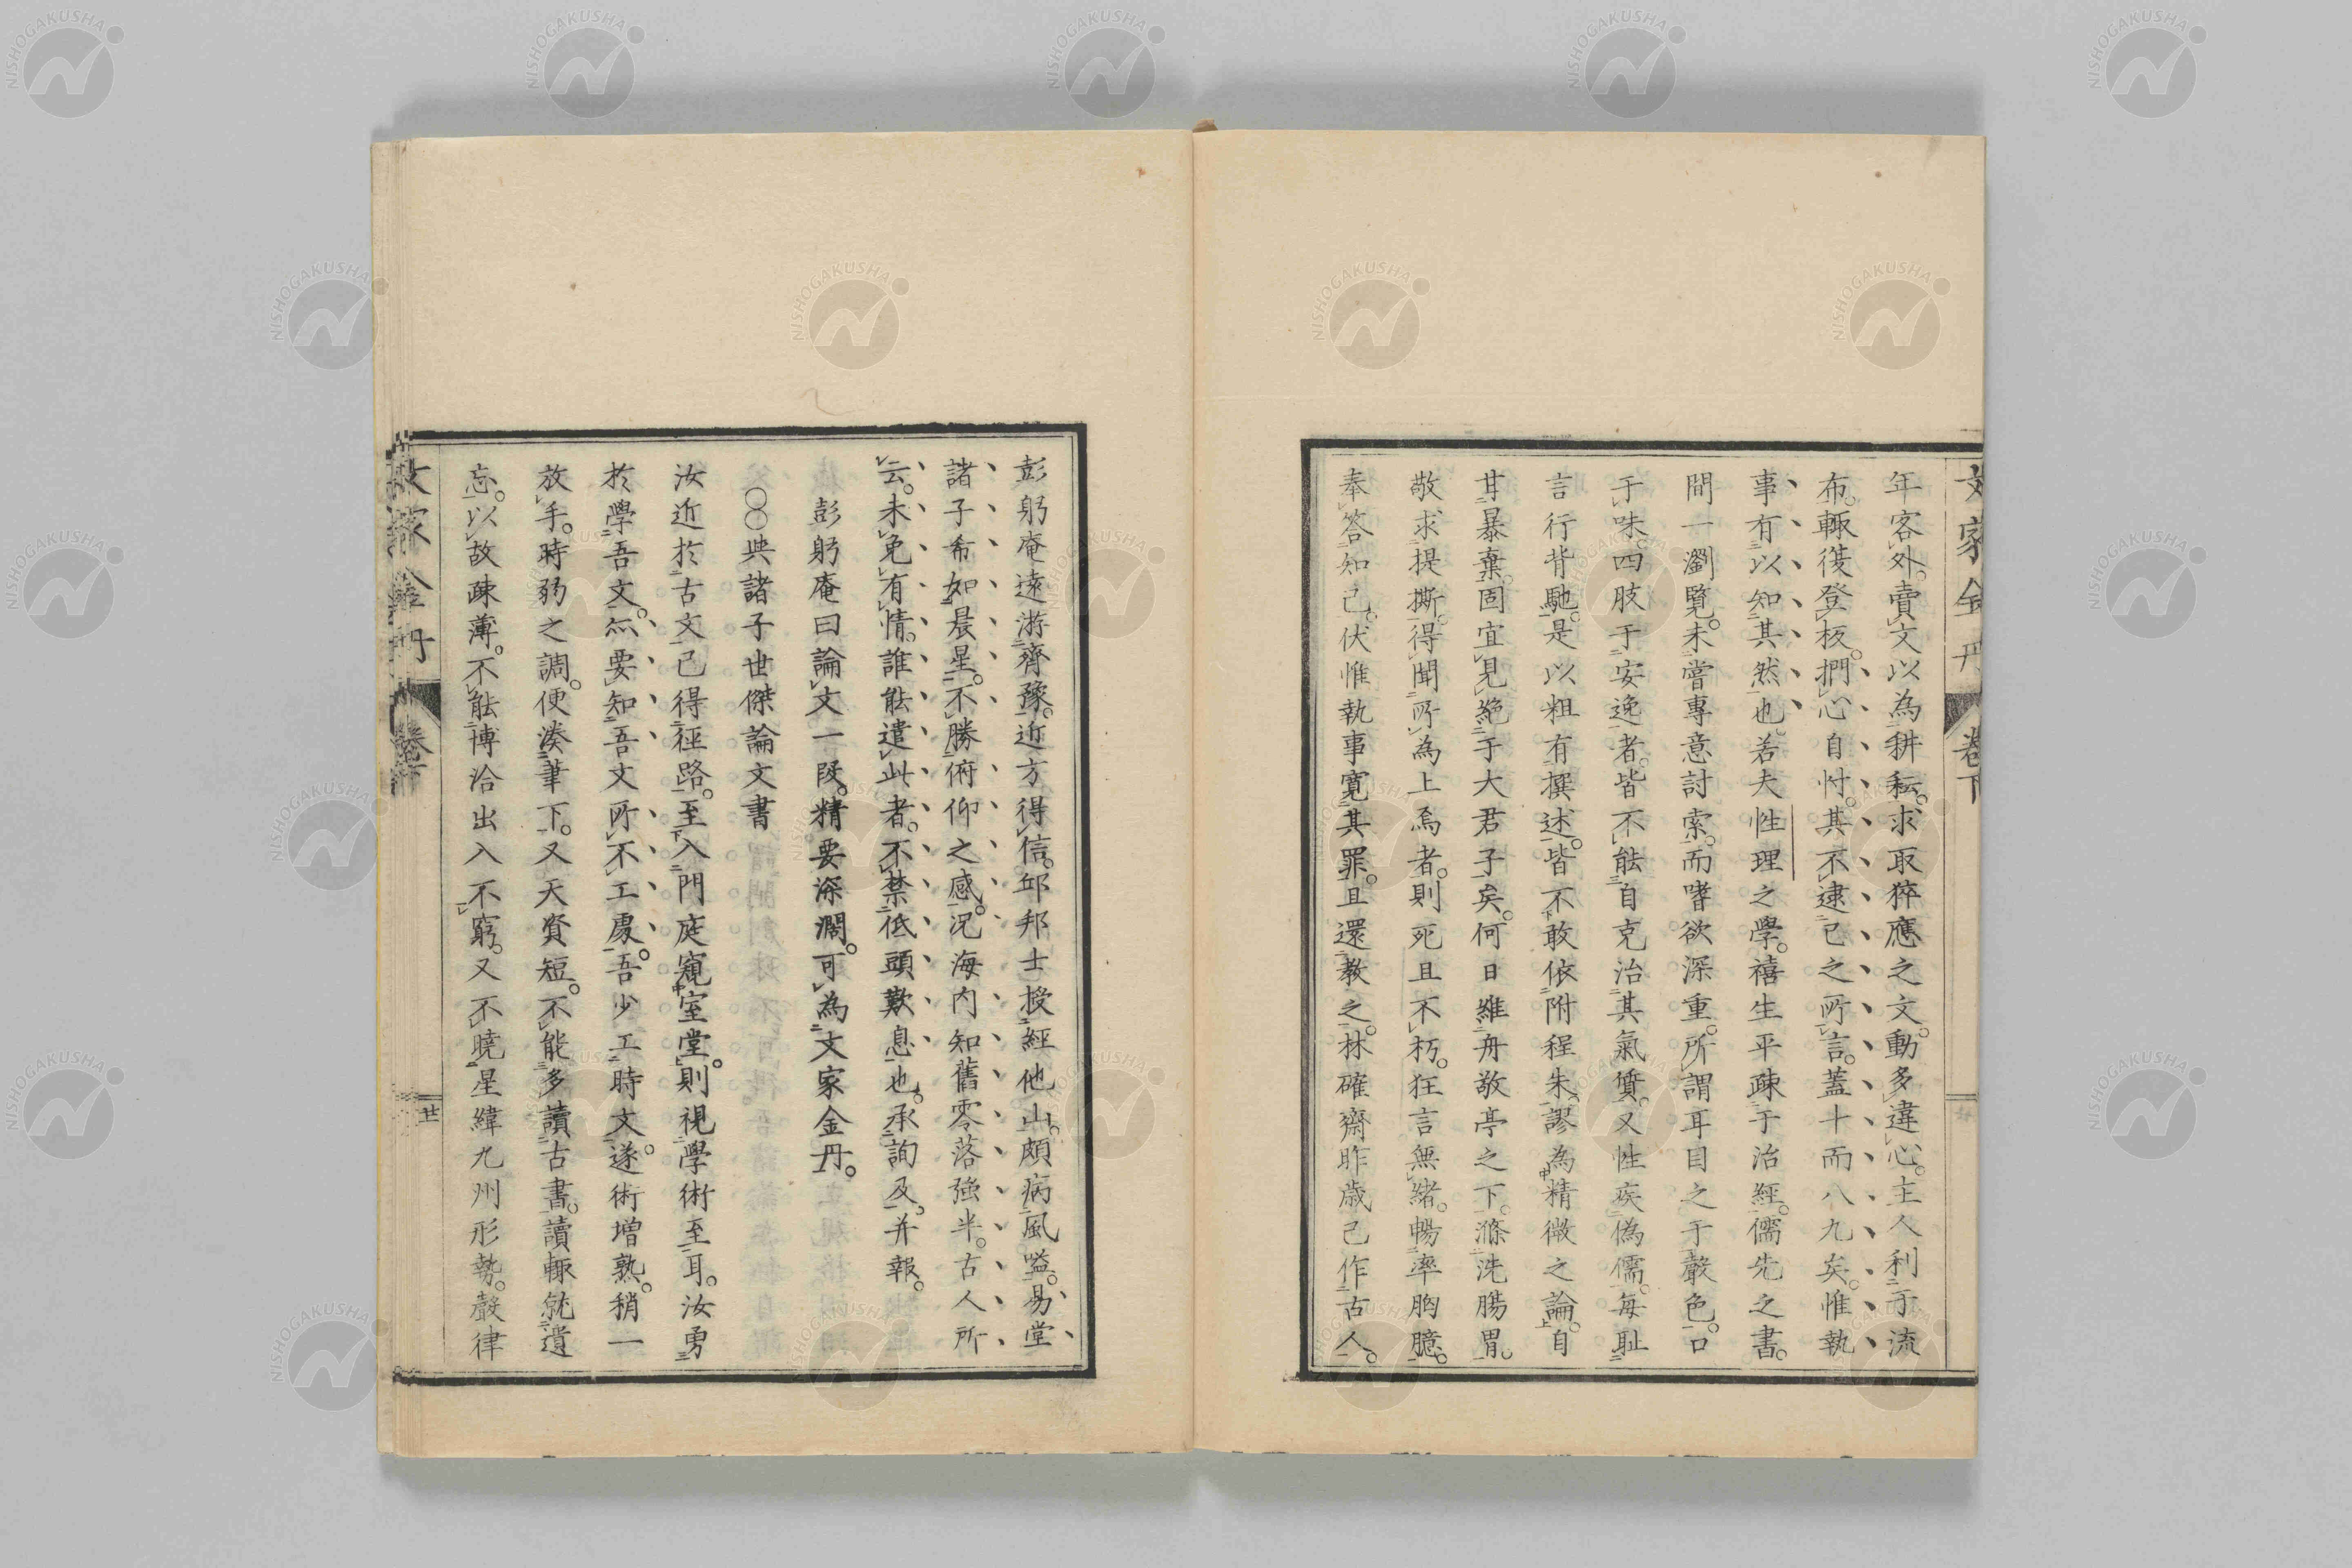 文家金丹 卷下
年客外。賣文以為耕耘。求取猝應之文。動多違心。主人利于流
布。輙復登板。捫心自忖。其不逮己之所言。蓋十而八九矣。惟執
事有以知其然也。若夫性理之學。禧生平疎于治經。儒先之書。
間一瀏覽。未嘗專意討索。而嗜欲深重。所謂耳目之于聲色。口
于味。四肢于安逸者。皆不能自克治其氣質。又性疾偽儒。每恥
言行背馳。是以粗有撰述。皆不敢依附程朱。謬為精微之論。自
甘暴棄。固宜見絶于大君子矣。何日維舟敬亭之下。滌洗腸胃。
敬求提撕。得聞所為上焉者。則死且不朽。狂言無緒。暢率胸臆。
奉答知己。伏惟執事寬其罪。且還教之。林確齋昨歳已作古人。
彭躬庵遠游齊豫。近方得信。邱邦士授經他山。頗病風嗌。易堂
諸子希如晨星。不勝俯仰之感。況海内知舊零落強半。古人所
云。未免有情。誰能遣此者。不禁低頭歎息也。承詢及。并報。
彭躬庵曰論文一段。精要深濶。可為文家金丹。
〇〇與諸子世傑論文書
汝近於古文。已得徑路。至入門庭窺室堂。則視學術至耳。汝勇
於學吾文。尓要知吾文所不工處。吾少工時文。遂術增熟。稍一
放手。時弱之調。便湊筆下。又天資短。不能多讀古書。讀輙就遺
忘。以故疎薄。不能博洽出入不窮。又不曉星緯九州形勢。聲律
文家金丹 卷下
廿